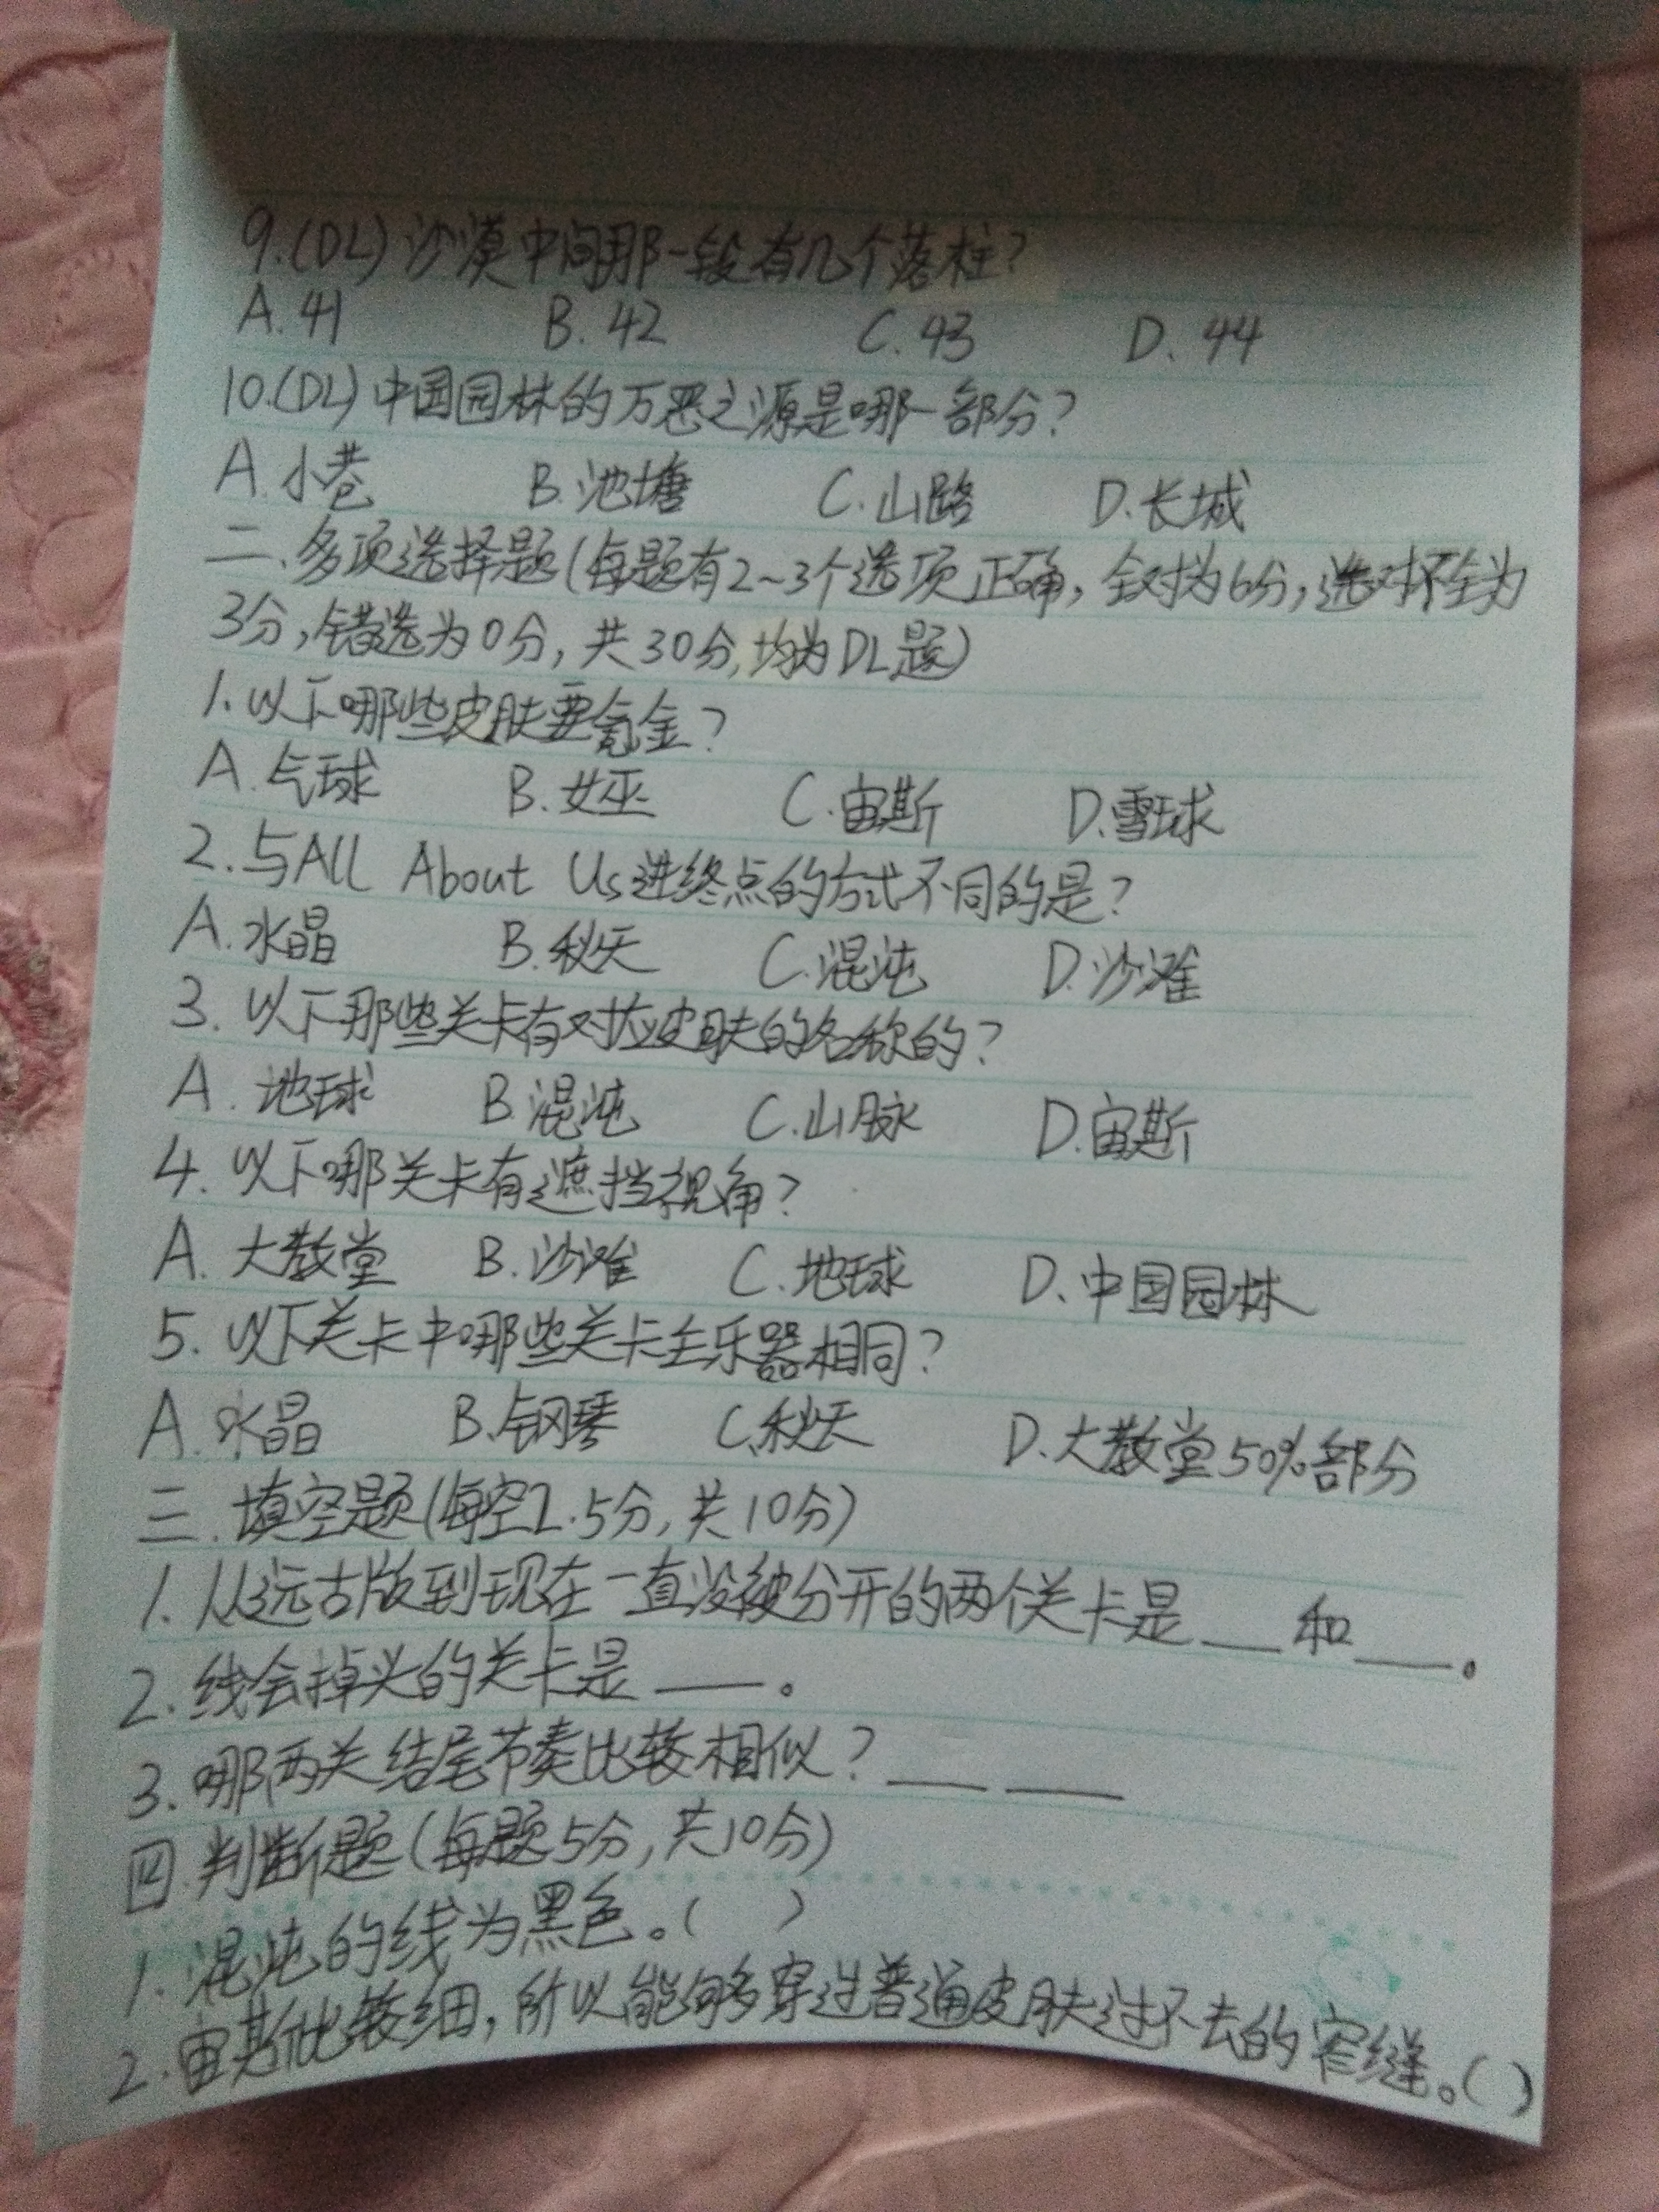 9.(DL)沙漠中间那一段有几个落柱?
A.41 B.42 C.43 D.44
10.(DL)中国园林的万恶之源是哪一部分?
A.小巷 B.池塘 C.山路 D.长城
二、多项选择题(每题有2~3个选项正确,全对为6分,选对不全为
3分,错选为0分,共30分,均为DL题)
1.以下哪些皮肤要氪金?
A.气球 B.女巫 C.宙斯 D.雪球
2.与All About Us进终点的方式不同的是?
A.水晶 B.秋天 C.混沌 D.沙滩
3.以下那些关卡有对应皮肤的名称的?
A.地球 B.混沌 C.山脉 D.宙斯
4.以下哪关卡有遮挡视角?
A.大教堂 B.沙滩 C.地球 D.中国园林
5.以下关卡中哪些关卡主乐器相同?
A.水晶 B.钢琴 C.秋天 D.大教堂50%部分
三.填空题(每空2.5分,共10分)
1.从远古版到现在一直没被分开的两个关卡是__和__。
2.线会掉头的关卡是__。
3.哪两关结尾节奏比较相似?__ __
四.判断题(每题5分,共10分)
1.混沌的线为黑色。( )
2.宙斯比较细,所以能够多穿过普通皮肤过不去的窄缝。( )